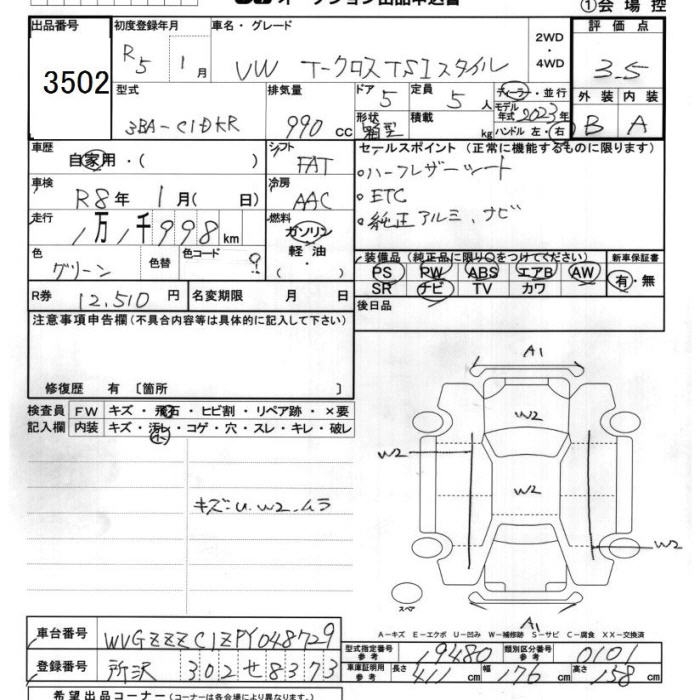 オークション出品申込書
①会場控
出品番号
3502
初度登録年月
R5年 1月
車名・グレード
VW T-クロスTSIスタイル
2WD・4WD
評価点
3.5
外装 内装
B A
型式
3BA-C1DKR
排気量
990 cc
ドア 5
形状 箱型
定員 5 人
積載 kg
ディーラー・並行
モデル年式 2023年
ハンドル 左・右
車歴
自家用・( )
シフト
FAT
セールスポイント (正常に機能するものに限ります)
・ハーフレザーシート
・ETC
・純正アルミ、ナビ
車検
R8年 1月( 日)
冷房
AAC
走行
1万1千998km
燃料
ガソリン
軽油
( )
色
グリーン
色替
色コード
装備品 (純正品に限り○をつけてください)
PS PW ABS エアB AW
SR ナビ TV カワ
新車保証書
有・無
R券 12,510円
名変期限 月 日
後日品
注意事項申告欄 (不具合内容等は具体的に記入して下さい)
修復歴 有 〔箇所 〕
検査員記入欄
FW キズ・飛石・ヒビ割・リペア跡・×要
内装 キズ・汚レ・コゲ・穴・スレ・キレ・破レ
小
キズ=U.W2.ムラ
A1
W2
W2
W2
W2
A1
スペア
A-キズ E-エクボ U-凹み W-補修跡 S-サビ C-腐食 XX-交換済
車台番号 WVGZZZC1ZPY048729
登録番号 所沢 302 せ 8373
型式指定番号 参考 19480
類別区分番号 参考 0101
車庫証明用 参考 長さ 411cm 幅 176cm 高さ 158cm
希望出品コーナー (コーナーは各会場により異なります。)